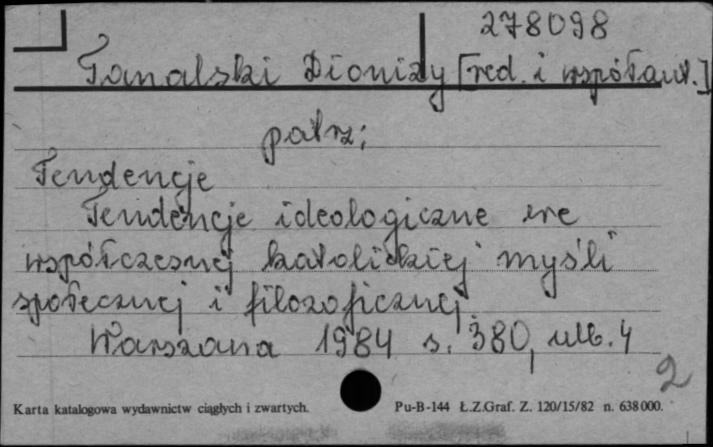 278098
Tanalski Dionizy [red. i współaut.]
patrz:
Tendencje
Tendencje ideologiczne we
współczesnej katolickiej myśli
społecznej i filozoficznej.
Warszawa 1984 s. 380, ulb. 4
2
Karta katalogowa wydawnictw ciągłych i zwartych. Pu-B-144 Ł.Z.Graf. Z. 120/15/82 n. 638000.